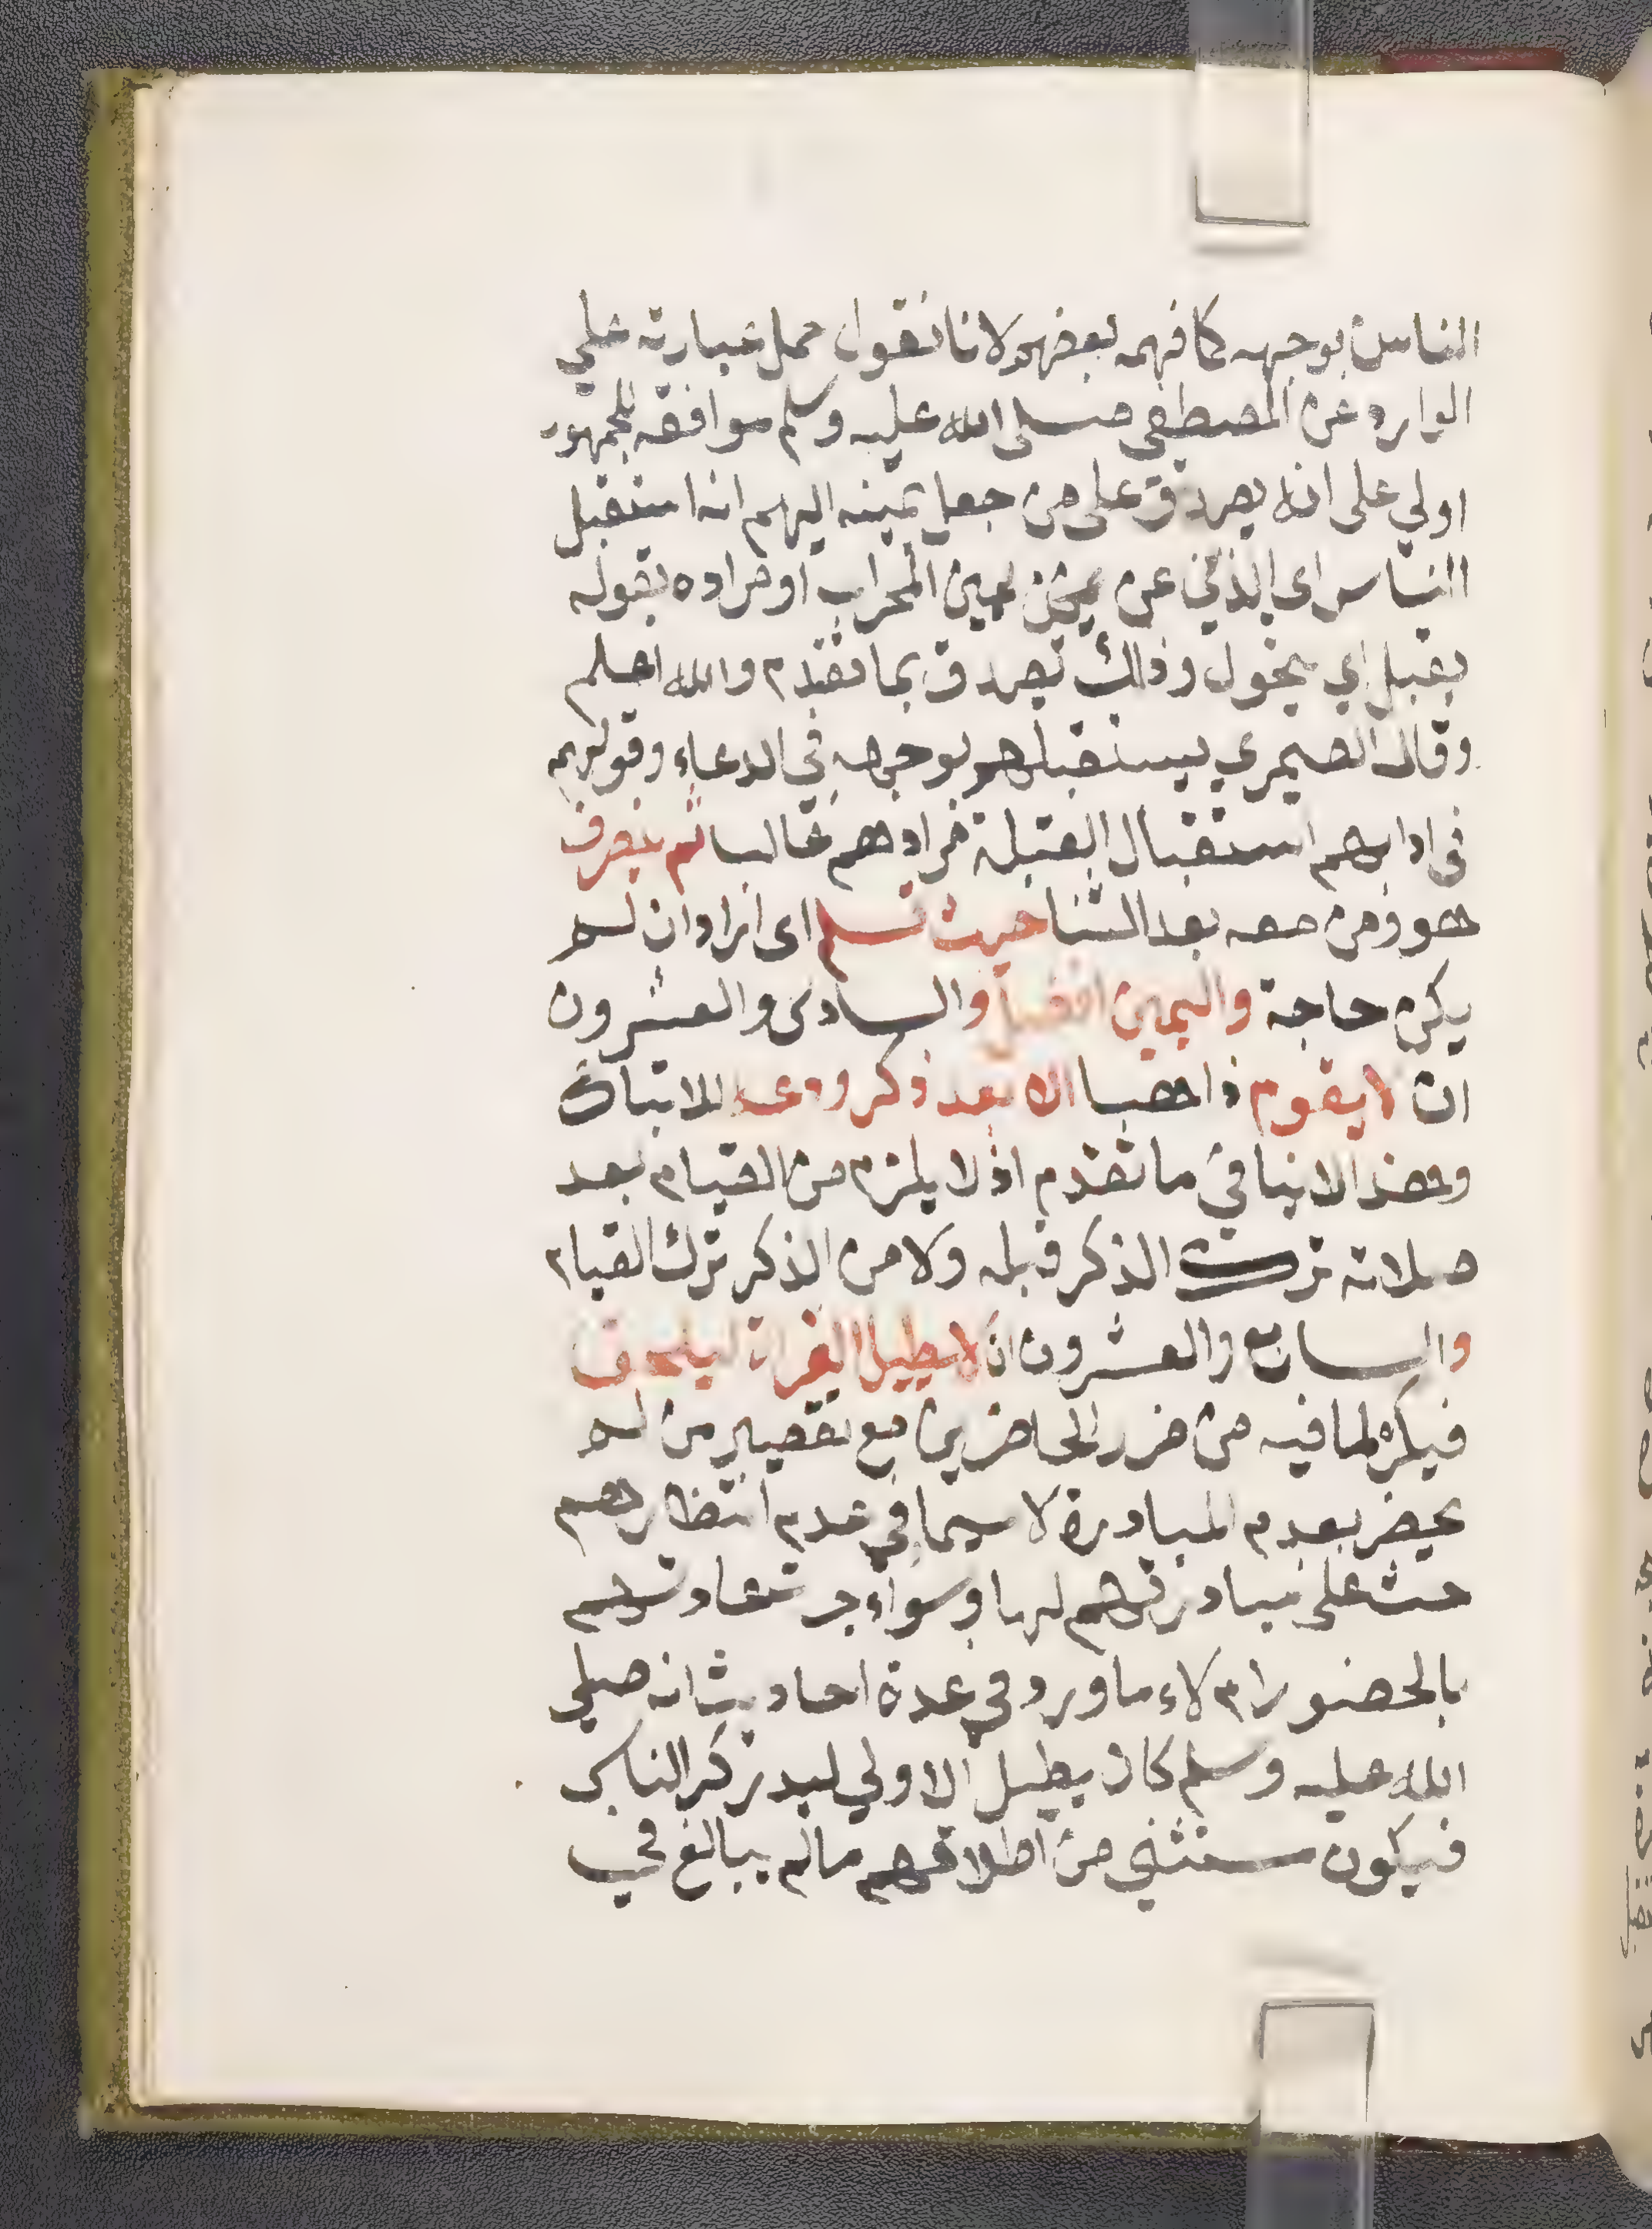 الناس بوجهه كما فهمه بعضهم لانا نقول حمل عبارته على
الوارد عن المصطفى صلى الله عليه وسلم موافقه للجمهور
اولي على انه يصدق على من جعل يمينه اليهم انه استقبل
الناس اى الذي عن يمين المحراب او مراده بقوله
يقبل اي يتحول وذلك يصدق بما تقدم والله اعلم
وقال الصيمري يستقبلهم بوجهه في الدعاء وقولهم
فى ادابهم استقبال القبلة مرادهم غالبا ثم ينصرف
هو ومن معه بعد الثنا حيث تسلم اى اراد ان لم
يكن حاجة واليمين افضل والسادس والعشرون
ان لا يقوم ذاهبا الا بعد ذكر ودعا للاتباع
وهذا لا ينافي ما تقدم اذ لا يلزم من القيام بعد
صلاته ترك الذكر قبله ولا من الذكر ترك القيام
والسابع والعشرون ان لا يطيل القراة ليلحق
فيكره لما فيه من ضرر الحاضرين مع تقصير من لم
يحضر بعدم المبادرة لا سيما في عدم انتظارهم
حث على مبادرتهم لها وسواء جرت عادتهم
بالحضور ام لاء ما ورد في عدة احاديث انه صلي
الله عليه وسلم كان يطيل الاولي ليدركه الناس
فيكون مستثني من اطلاقهم ما لم يبالغ في